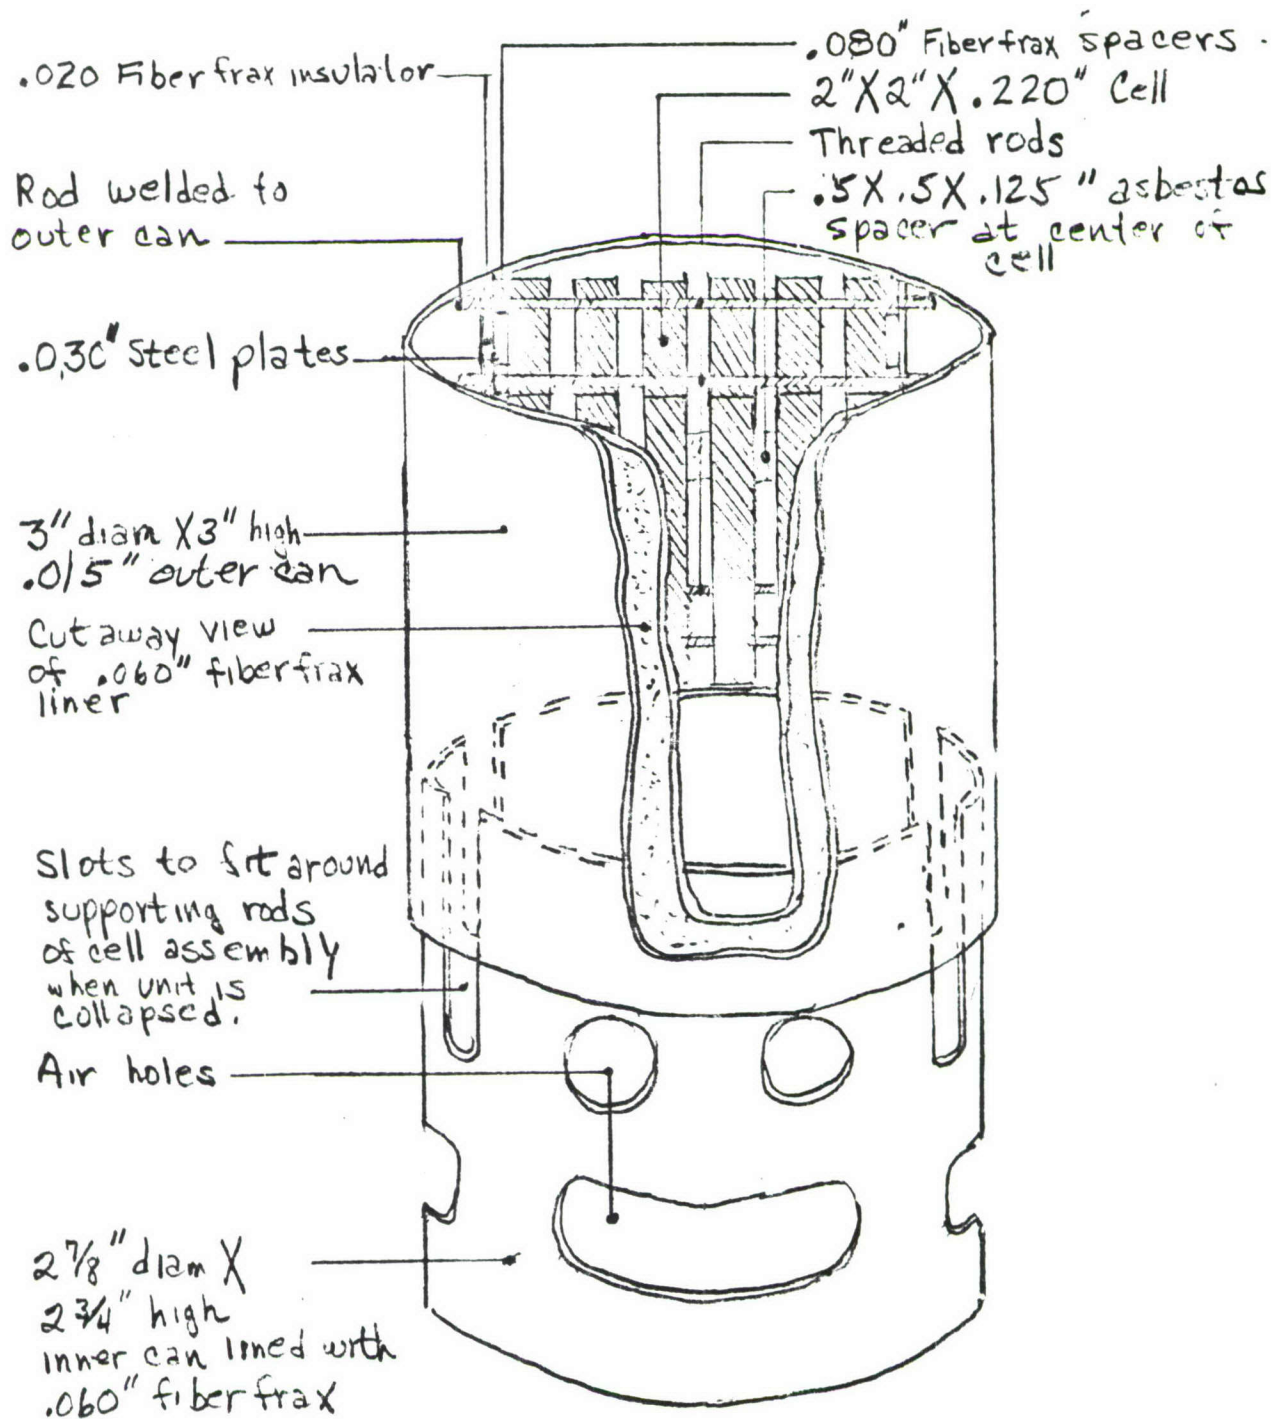 .020 Fiberfrax insulator
Rod welded to
outer can
.030" Steel plates
3" diam X 3" high
.015" outer can
Cutaway view
of .060" fiberfrax
liner
Slots to fit around
supporting rods
of cell assembly
when unit is
collapsed.
Air holes
2 7/8" diam X
2 3/4" high
inner can lined with
.060" fiberfrax
.080" Fiberfrax spacers
2" X 2" X .220" Cell
Threaded rods
.5 X .5 X .125" asbestos
spacer at center of
cell